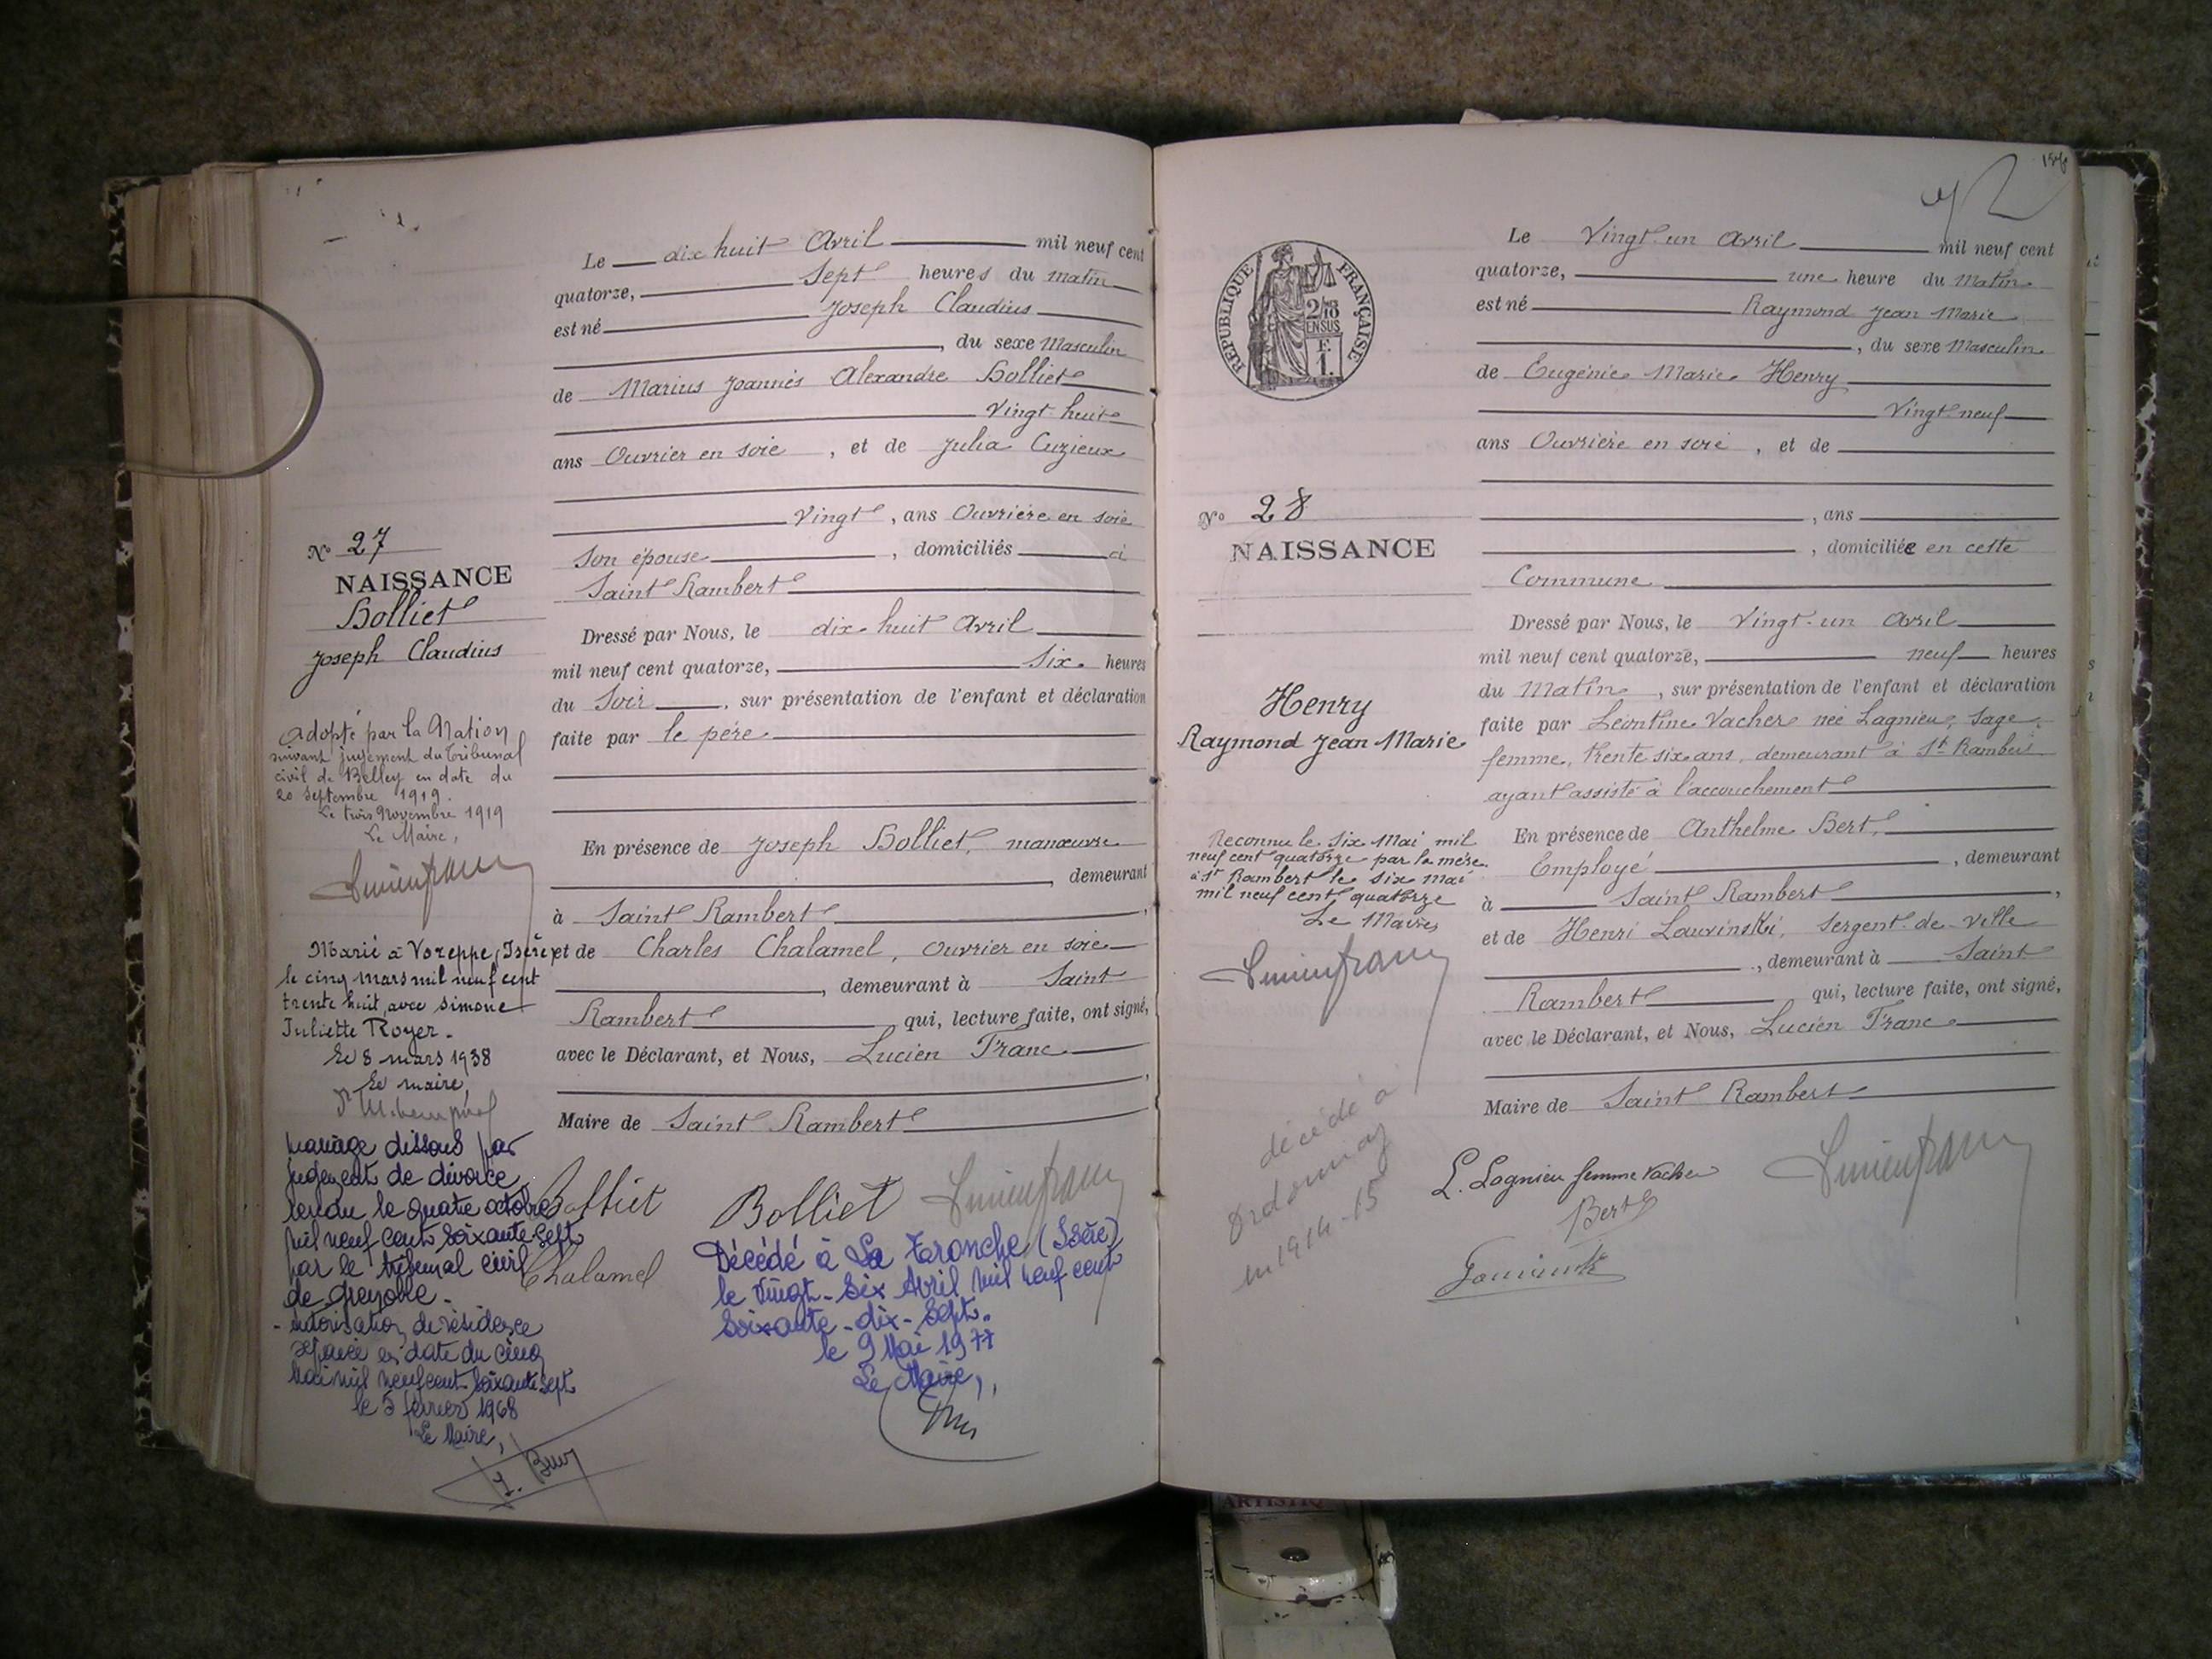 Le dix huit Avril mil neuf cent
quatorze, sept heures du matin
est né Joseph Claudius
, du sexe Masculin
de Marius Joannès Alexandre Bolliet
Vingt huit
ans Ouvrier en soie , et de Julia Cuzieux
Vingt , ans Ouvrière en soie
Son épouse , domiciliés à
Saint Rambert
Dressé par Nous, le dix-huit Avril
mil neuf cent quatorze, Six heures
du Soir , sur présentation de l'enfant et déclaration
faite par le père
En présence de Joseph Bolliet, manœuvre
, demeurant
à Saint Rambert ,
et de Charles Chalamel, Ouvrier en soie
, demeurant à Saint
Rambert qui, lecture faite, ont signé,
avec le Déclarant, et Nous, Lucien Franc
,
Maire de Saint Rambert
Bolliet Bolliet Lucien franc
Chalamel
Décédé à La Tronche (Isère)
le Vingt-Six Avril mil neuf cent
Soixante-dix-Sept.
le 9 Mai 1977
Le Maire,
No 27
NAISSANCE
Bolliet
Joseph Claudius
Adopté par la Nation
suivant jugement du Tribunal
civil de Belley en date du
20 Septembre 1919.
Le trois Novembre 1919
Le Maire,
Lucien franc
Marié à Voreppe, (Isère)
le cinq mars mil neuf cent
trente huit, avec Simone
Juliette Royer.
Le 8 mars 1938
Le maire,
mariage dissous par
jugement de divorce
rendu le quatre octobre
mil neuf cent soixante-sept
par le tribunal civil
de Grenoble.
- autorisation de résidence
séparée en date du cinq
Mai mil neuf cent soixante sept
le 5 février 1968
Le Maire,
Le Vingt-un Avril mil neuf cent
quatorze, une heure du Matin
est né Raymond Jean Marie
, du sexe Masculin
de Eugénie Marie Henry
Vingt-neuf
ans Ouvrière en soie , et de
, ans
, domiciliée en cette
Commune
Dressé par Nous, le Vingt-un Avril
mil neuf cent quatorze, neuf heures
du Matin , sur présentation de l'enfant et déclaration
faite par Léontine Vacher née Lagnieu, sage
femme, trente six ans, demeurant à St Rambert
ayant assisté à l'accouchement
En présence de Anthelme Bert,
Employé , demeurant
à Saint Rambert ,
et de Henri Lauvinski, Sergent de Ville
, demeurant à Saint
Rambert qui, lecture faite, ont signé,
avec le Déclarant, et Nous, Lucien Franc
Maire de Saint Rambert
L. Lagnieu femme Vacher Lucien franc
Bert
RÉPUBLIQUE FRANÇAISE
2/10
EN SUS
F.
1.
No 28
NAISSANCE
Henry
Raymond Jean Marie
Reconnu le Six Mai mil
neuf cent quatorze par la mère
à St Rambert le six mai
mil neuf cent quatorze
Le Maire,
Lucien franc
décédé à
en 1914-15
ARTISTIQ